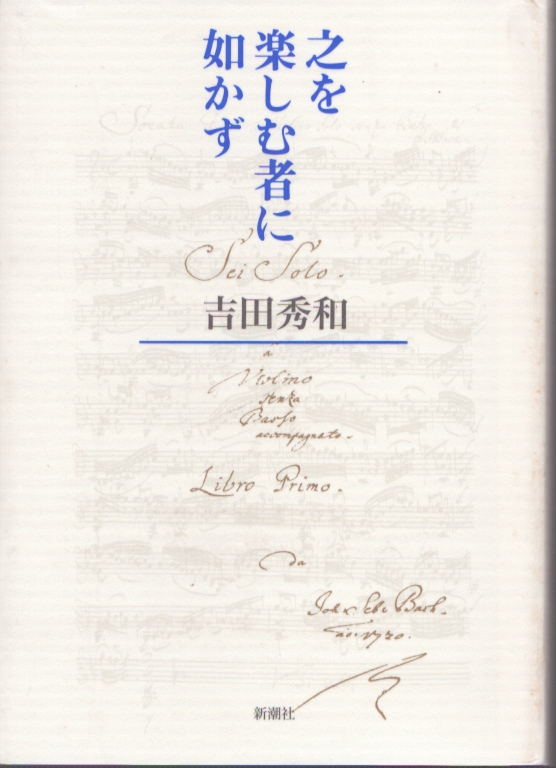 之を
楽しむ者に
如かず
Sei Solo.
吉田秀和
a
Violino
senza
Basso
accompagnato.
Libro Primo.
da
Joh. Seb. Bach.
ao. 1720.
新潮社